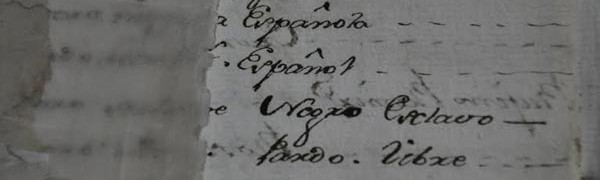 Española
Español
Negro Esclavo
Pardo. Libre